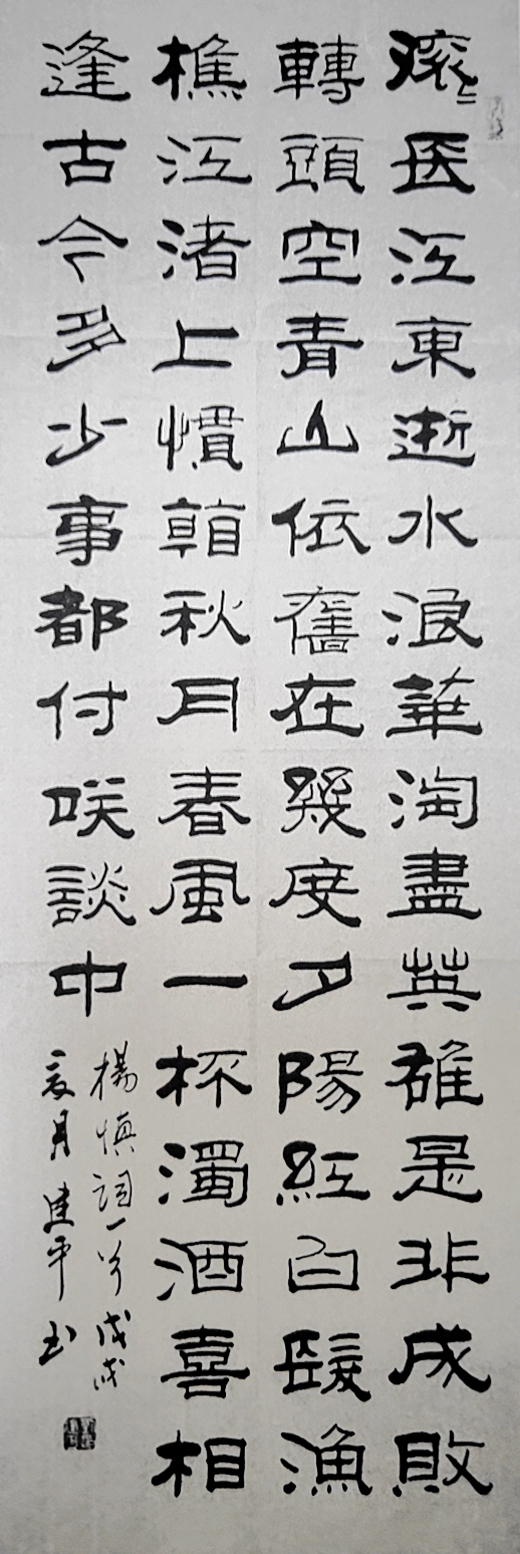 滚〻長江東逝水浪華淘盡英雄是非成敗
轉頭空青山依舊在幾度夕陽紅白髮漁
樵江渚上慣看秋月春風一杯濁酒喜相
逢古今多少事都付咲談中
楊慎詞一首戊戌
夏月建平书